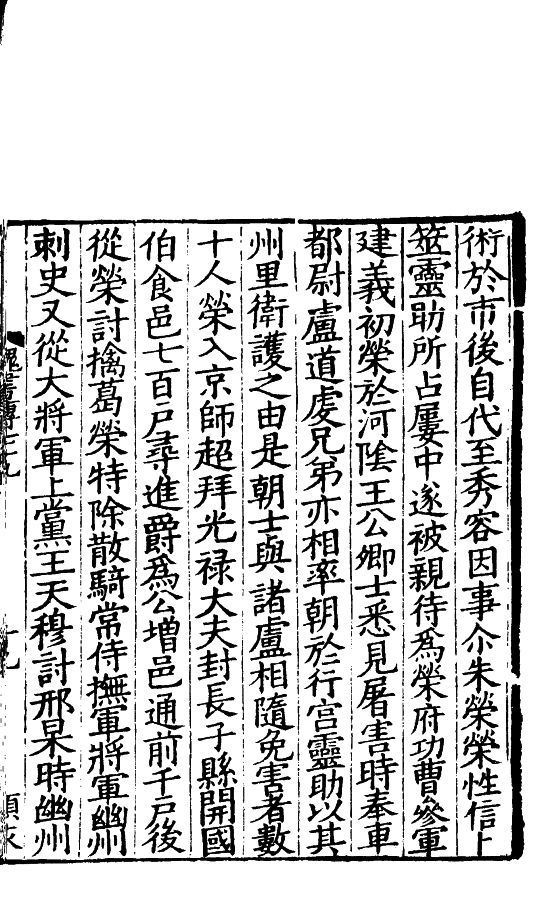 術於市後自代至秀容因事尒朱榮榮性信卜
筮靈助所占屢中遂被親待爲榮府功曹叅軍
建義初榮於河隂王公卿士悉見屠害時奉車
都尉盧道虔兄弟亦相率朝於行宫靈助以其
州里衛護之由是朝士與諸盧相隨免害者數
十人榮入京師超拜光禄大夫封長子縣開國
伯食邑七百戸尋進爵爲公增邑通前千戸後
從榮討擒葛榮特除散騎常侍撫軍將軍幽州
刺史又從大將軍上黨王天穆討邢杲時幽州